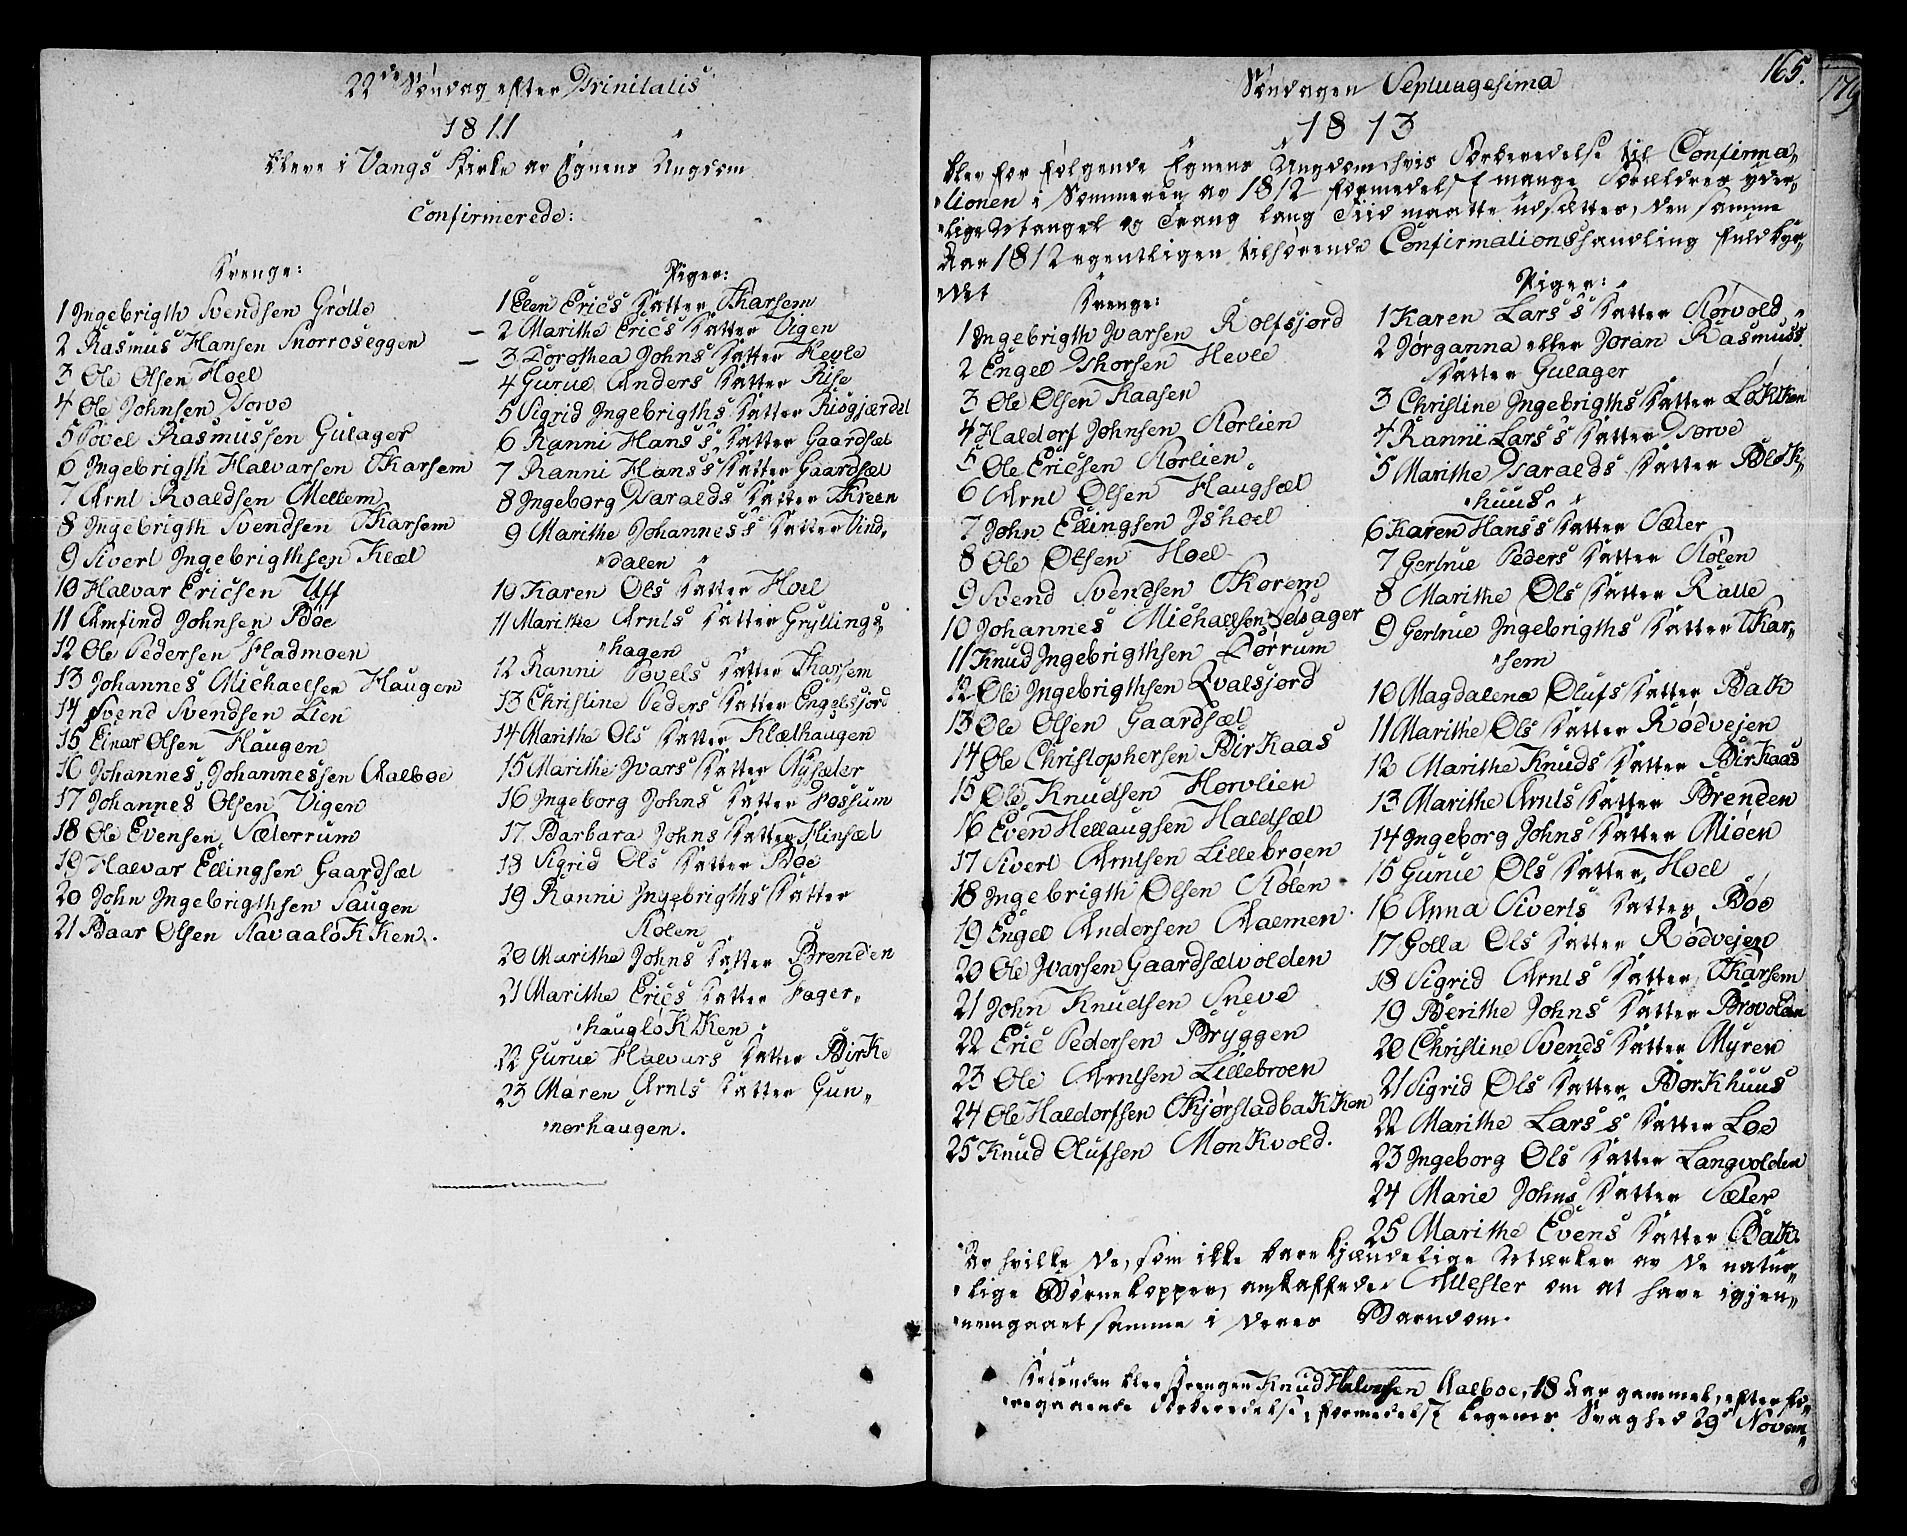 22de Søndag efter Trinitatis
1811
bleve i Vangs Kirke av Egnens Ungdom
Confirmerede:
Drenge:
1 Ingebrigth Svendsen Grølle
2 Rasmus Hansen Snorroseggen
3 Ole Olsen Hoel
4 Ole Johnsen Torve
5 Povel Rasmussen Gulager
6 Ingebrigth Halvarsen Tkarsem
7 Arnt Roaldsen Mellem
8 Ingebrigth Svendsen Tkarsem
9 Sivert Ingebrigthsen Klæt
10 Halvar Ericsen Uff
11 Amfind Johnsen Böe
12 Ole Pedersen Fladmoen
13 Johannes Michaelsen Haugen
14 Svend Svendsen Lien
15 Einar Olsen Haugen
16 Johannes Johannessen Aalboe
17 Johannes Olsen Vigen
18 Ole Evensen Sæterrum
19 Halvar Ellingsen Gaardsæt
20 John Ingebrigthsen Saugen
21 Baar Olsen Navaaløkken.
Piger:
1 Elen Erics Datter Tkarsem
2 Marithe Erics Datter Vigen
3 Dorothea Johns Datter Hevle
4 Gurue Anders Datter Rise
5 Sigrid Ingebrigths Datter Risgjærdet
6 Ranni Hans's Datter Gaardsæt
7 Ranni Hans's Datter Gaardsæt
8 Ingeborg Taralds Datter Tkreen
9 Marithe Johannes's Datter Vind,
"dalen"
10 Karen Ols Datter Hoel
11 Marithe Arnts Datter Gryllings,
"hagen
12 Ranni Povels Datter Tkarsem
13 Christine Peders Datter Engelsjord
14 Marithe Ols Datter Klæthaugen
15 Marithe Ivars Datter Nysæter
16 Ingeborg Johns Datter Fossum
17 Barbara Johns Datter Flinsæt
18 Sigrid Ols Datter Böe
19 Ranni Ingebrigths Datter
Nölen
20 Marithe Johns Datter Brenden
21 Marithe Erics Datter Fager,
"hauglökken
22 Gurue Halvars Datter Birke
23 Maren Arnts Datter Gun,
"norhaugen.
165.
179
Søndagen Septuagesima
1813
blev for følgende Egnens Ungdom, hvis Forberedelse til Confirma,
"tionen i Sommeren av 1812 formedelst mange Forældres yder,
"lige Mangel og Trang lang Tiid maatte udsættes, den samme
Aar 1812 egentligen tilhørende Confirmationshandling fuldbyr,
"det
Drenge:
1 Ingebrigth Ivarsen Rolfsjord
2 Engel Thorsen Hevle
3 Ole Olsen Kaasen
4 Haldorf Johnsen Nørlien
5 Ole Ericsen Nørlien
6 Arnt Olsen Haugsæt
7 John Ellingsen Ishoel
8 Ole Olsen Hoel
9 Svend Svendsen Tkorem
10 Johannes Michaelsen Detsager
11 Knud Ingebrigthsen Dørrum
12 Ole Ingebrigthsen Qvalsjord
13 Ole Olsen Gaardsæt
14 Ole Christophersen Birkaas
15 Ole Knudsen Horvlien
16 Even Hellaugsen Haldsæt
17 Sivert Arntsen Lillebroen
18 Ingebrigth Olsen Nölen
19 Engel Andersen Aalmen
20 Ole Ivarsen Gaardsætvolden
21 John Knudsen Sneve
22 Eric Pedersen Bryggen
23 Ole Arntsen Lillebroen
24 Ole Haldorfsen Tkjørstadbakken
25 Knud Olufsen Monkvold.
Piger:
1 Karen Lars's Datter Nørvold
2 Jorganna eller Joran Rasmus's
Datter Gulager
3 Christine Ingebrigths Datter Løkken
4 Ranni Lars's Datter Torve
5 Marithe Taralds Datter Blok,
"huus"
6 Karen Hans's Datter Sæter
7 Gertrue Peders Datter Nölen
8 Marithe Ols Datter Ralle
9 Gertrue Ingebrigths Datter Tkar,
"sem
10 Magdalena Olufs Datter Bak
11 Marithe Ols Datter Rødvejen
12 Marithe Knuds Datter Birkaas
13 Marithe Arnts Datter Brenden
14 Ingeborg Johns Datter Mioen
15 Gurue Ols Datter Hoel
16 Anna Siverts Datter Böe
17 Golla Ols Datter Rødvejen
18 Sigrid Arnts Datter Tkarsem
19 Berithe Johns Datter Brovolden
20 Christine Svends Datter Myren
21 Sigrid Ols Datter Borkhuus
22 Marithe Lars's Datter Loe
23 Ingeborg Ols Datter Langvolden
24 Marie Johns Datter Sæter
25 Marithe Evens Datter Bak.
Av hvilke de, som ikke bare kjændelige Mærker av de natur,
"lige Børnekopper, anskaffede Attester om at have igjen,
"nemgaaet samme i deres Barndom.
blev Drengen Knud Halvorsen Aalboe, 18 Aar gammel, efter fo,
"regaaende Forberedelse, formedelst Legems Svaghed 29de Novem,